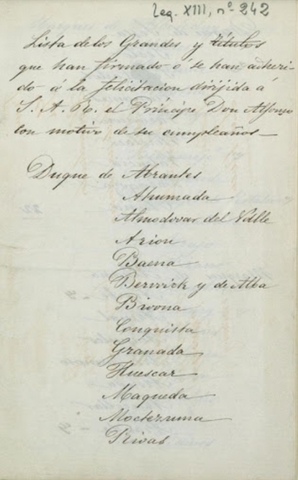 Leg. XIII, nº 242
Lista de los Grandes y títulos
que han firmado ó se han adheri-
do á la felicitacion dirijida á
S. A. R. el Príncipe Don Alfonso
con motivo de su cumpleaños—
Duque de Abrantes
Ahumada
Almodovar del Valle
Arion
Baena
Berwick y de Alba
Bivona
Conquista
Granada
Huescar
Maqueda
Moctezuma
Rivas